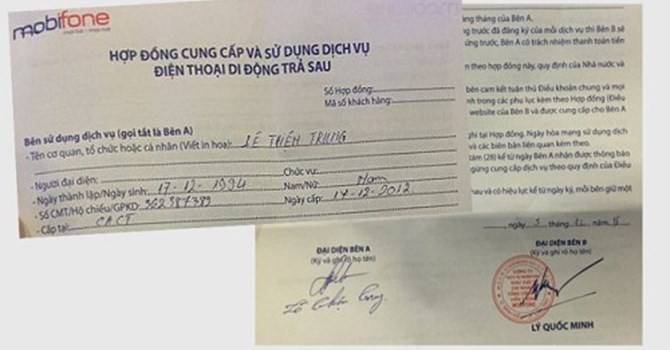 mobifone
HỢP ĐỒNG CUNG CẤP VÀ SỬ DỤNG DỊCH VỤ
ĐIỆN THOẠI DI ĐỘNG TRẢ SAU
Số Hợp đồng:
Mã số khách hàng:
Bên sử dụng dịch vụ (gọi tắt là Bên A)
- Tên cơ quan, tổ chức hoặc cá nhân (Viết in hoa): LÊ THIỆN TRUNG
- Người đại diện: Chức vụ:
- Ngày thành lập/Ngày sinh: 17-12-1994 Nam/Nữ: Nam
- Số CMT/Hộ chiếu/GPKD: 362387389 Ngày cấp: 14-12-2012
- Cấp tại: CACT
tháng của Bên A.
trước đã đăng ký của mỗi dịch vụ thì Bên B sẽ
ứng trước, Bên A có trách nhiệm thanh toán tiền
theo hợp đồng này, quy định của Nhà nước và
bên cam kết tuân thủ Điều khoản chung và mọi
nh trong các phụ lục kèm theo Hợp đồng (Điều
website của Bên B và được cung cấp cho Bên A
ghi tại Hợp đồng. Ngày hòa mạng sử dụng dịch
và các biên bản liên quan kèm theo.
tám (28) kể từ ngày Bên A nhận được thông báo
ngừng cung cấp dịch vụ theo quy định của Điều
nhau và có hiệu lực kể từ ngày ký, mỗi bên giữ một
, ngày 5 tháng năm
ĐẠI DIỆN BÊN A
(Ký và ghi rõ họ tên)
ĐẠI DIỆN BÊN B
(Ký và ghi rõ họ tên)
LÝ QUỐC MINH